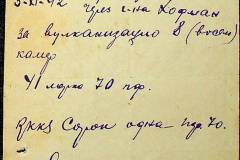 5-XI-42 через г-на Кофман
за вулканизацию 8 (восем)
камер
41 марка 70 пф.
Rkks Сорок одна пф. 70.